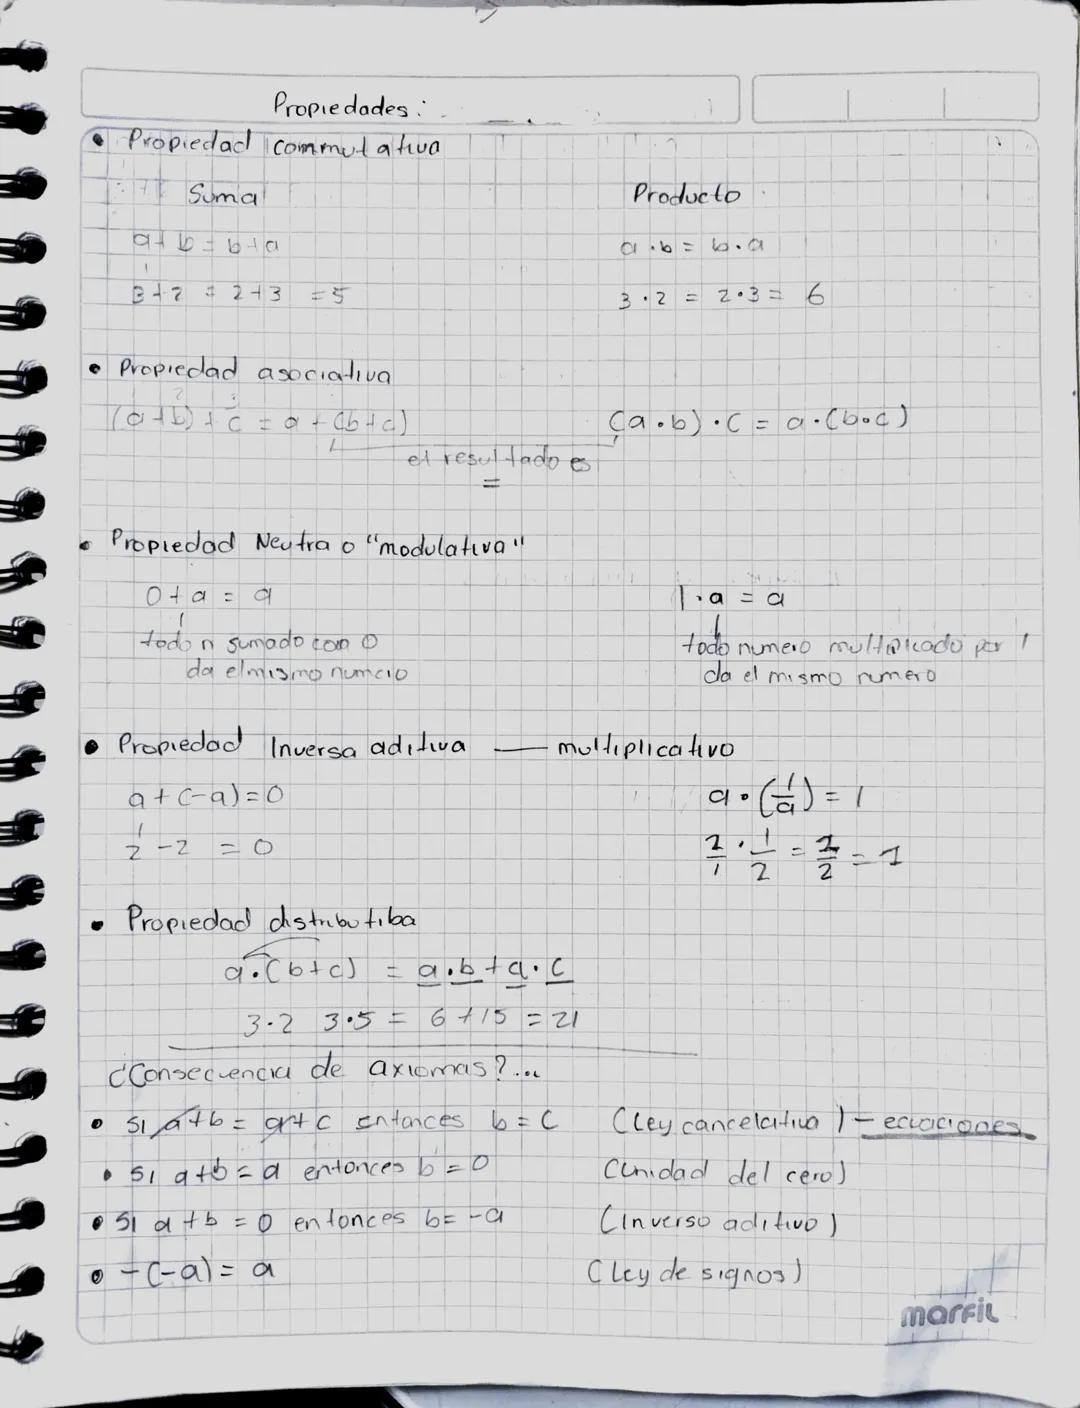 Propiedades:
• Propiedad commutativa
Suma Producto
a+b = b+a a·b = b·a
3+2 = 2+3 = 5 3·2 = 2·3 = 6
• Propiedad asociativa
(a+b)+c = a+(b+c) (a·b)·c = a·(b·c)
el resultado es
=
• Propiedad Neutra o "modulativa"
0+a = a 1·a = a
todo n sumado con 0 todo numero multiplicado por 1
da el mismo numero da el mismo numero
• Propiedad Inversa aditiva — multiplicativo
a+(-a)=0 a·(1/a) = 1
2-2 = 0 2/1 · 1/2 = 2/2 = 1
• Propiedad distributiba
a·(b+c) = a·b+a·c
3·2 3·5 = 6+15 = 21
¿Consecuencia de axiomas?...
• Si a+b = a+c entonces b=c (Ley cancelativa) - ecuaciones
• Si a+b = a entonces b=0 (Unidad del cero)
• Si a+b = 0 entonces b=-a (Inverso aditivo)
• -(-a) = a (Ley de signos)
marfil